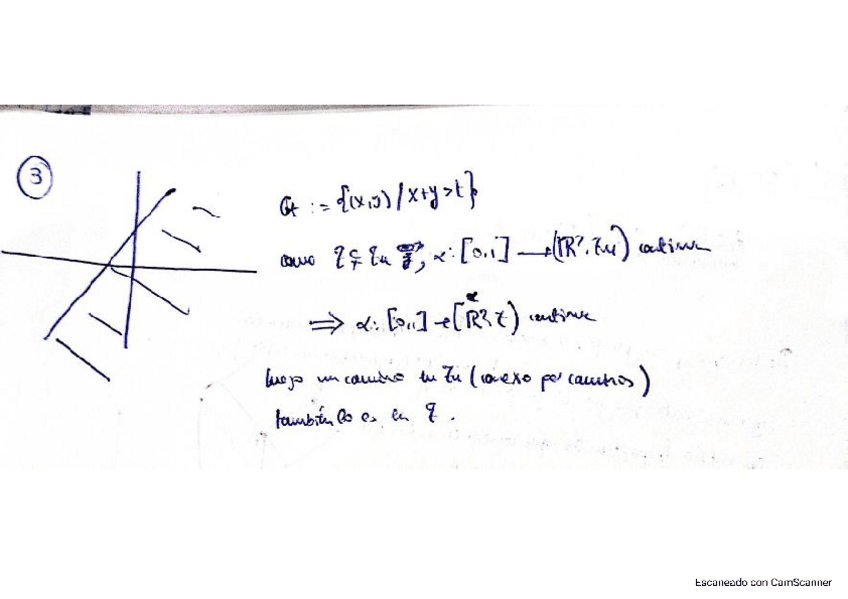 3
Gt := {(x,y) / x+y>t}
como ⊊ , α: [0,1] → (ℝ², ) continua
⟹ α: [0,1] → (ℝ², ) continua
luego un camino en (conexo por caminos)
también lo es en
Escaneado con CamScanner